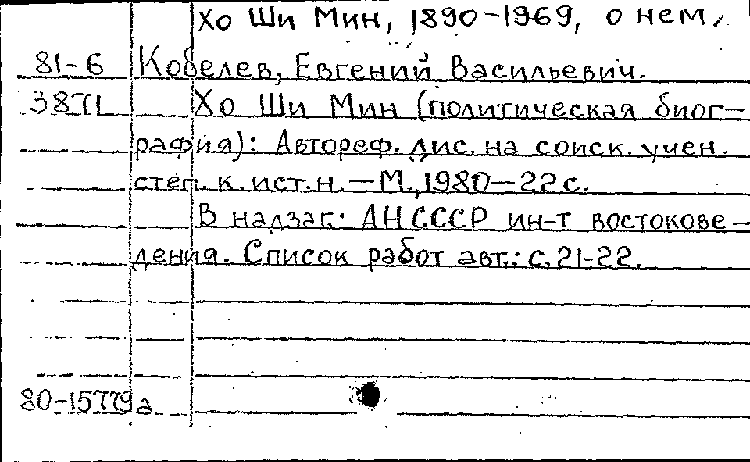 Хо Ши Мин, 1890-1969, о нем.
81-6 Кобелев, Евгений Васильевич.
3871 Хо Ши Мин (политическая биог-
рафия): Автореф. дис. на соиск. учен.
степ. к. ист. н. — М., 1980 — 22 с.
В надзаг.: АН СССР ин-т востокове-
дения. Список работ авт.: с. 21-22.
80-15779а